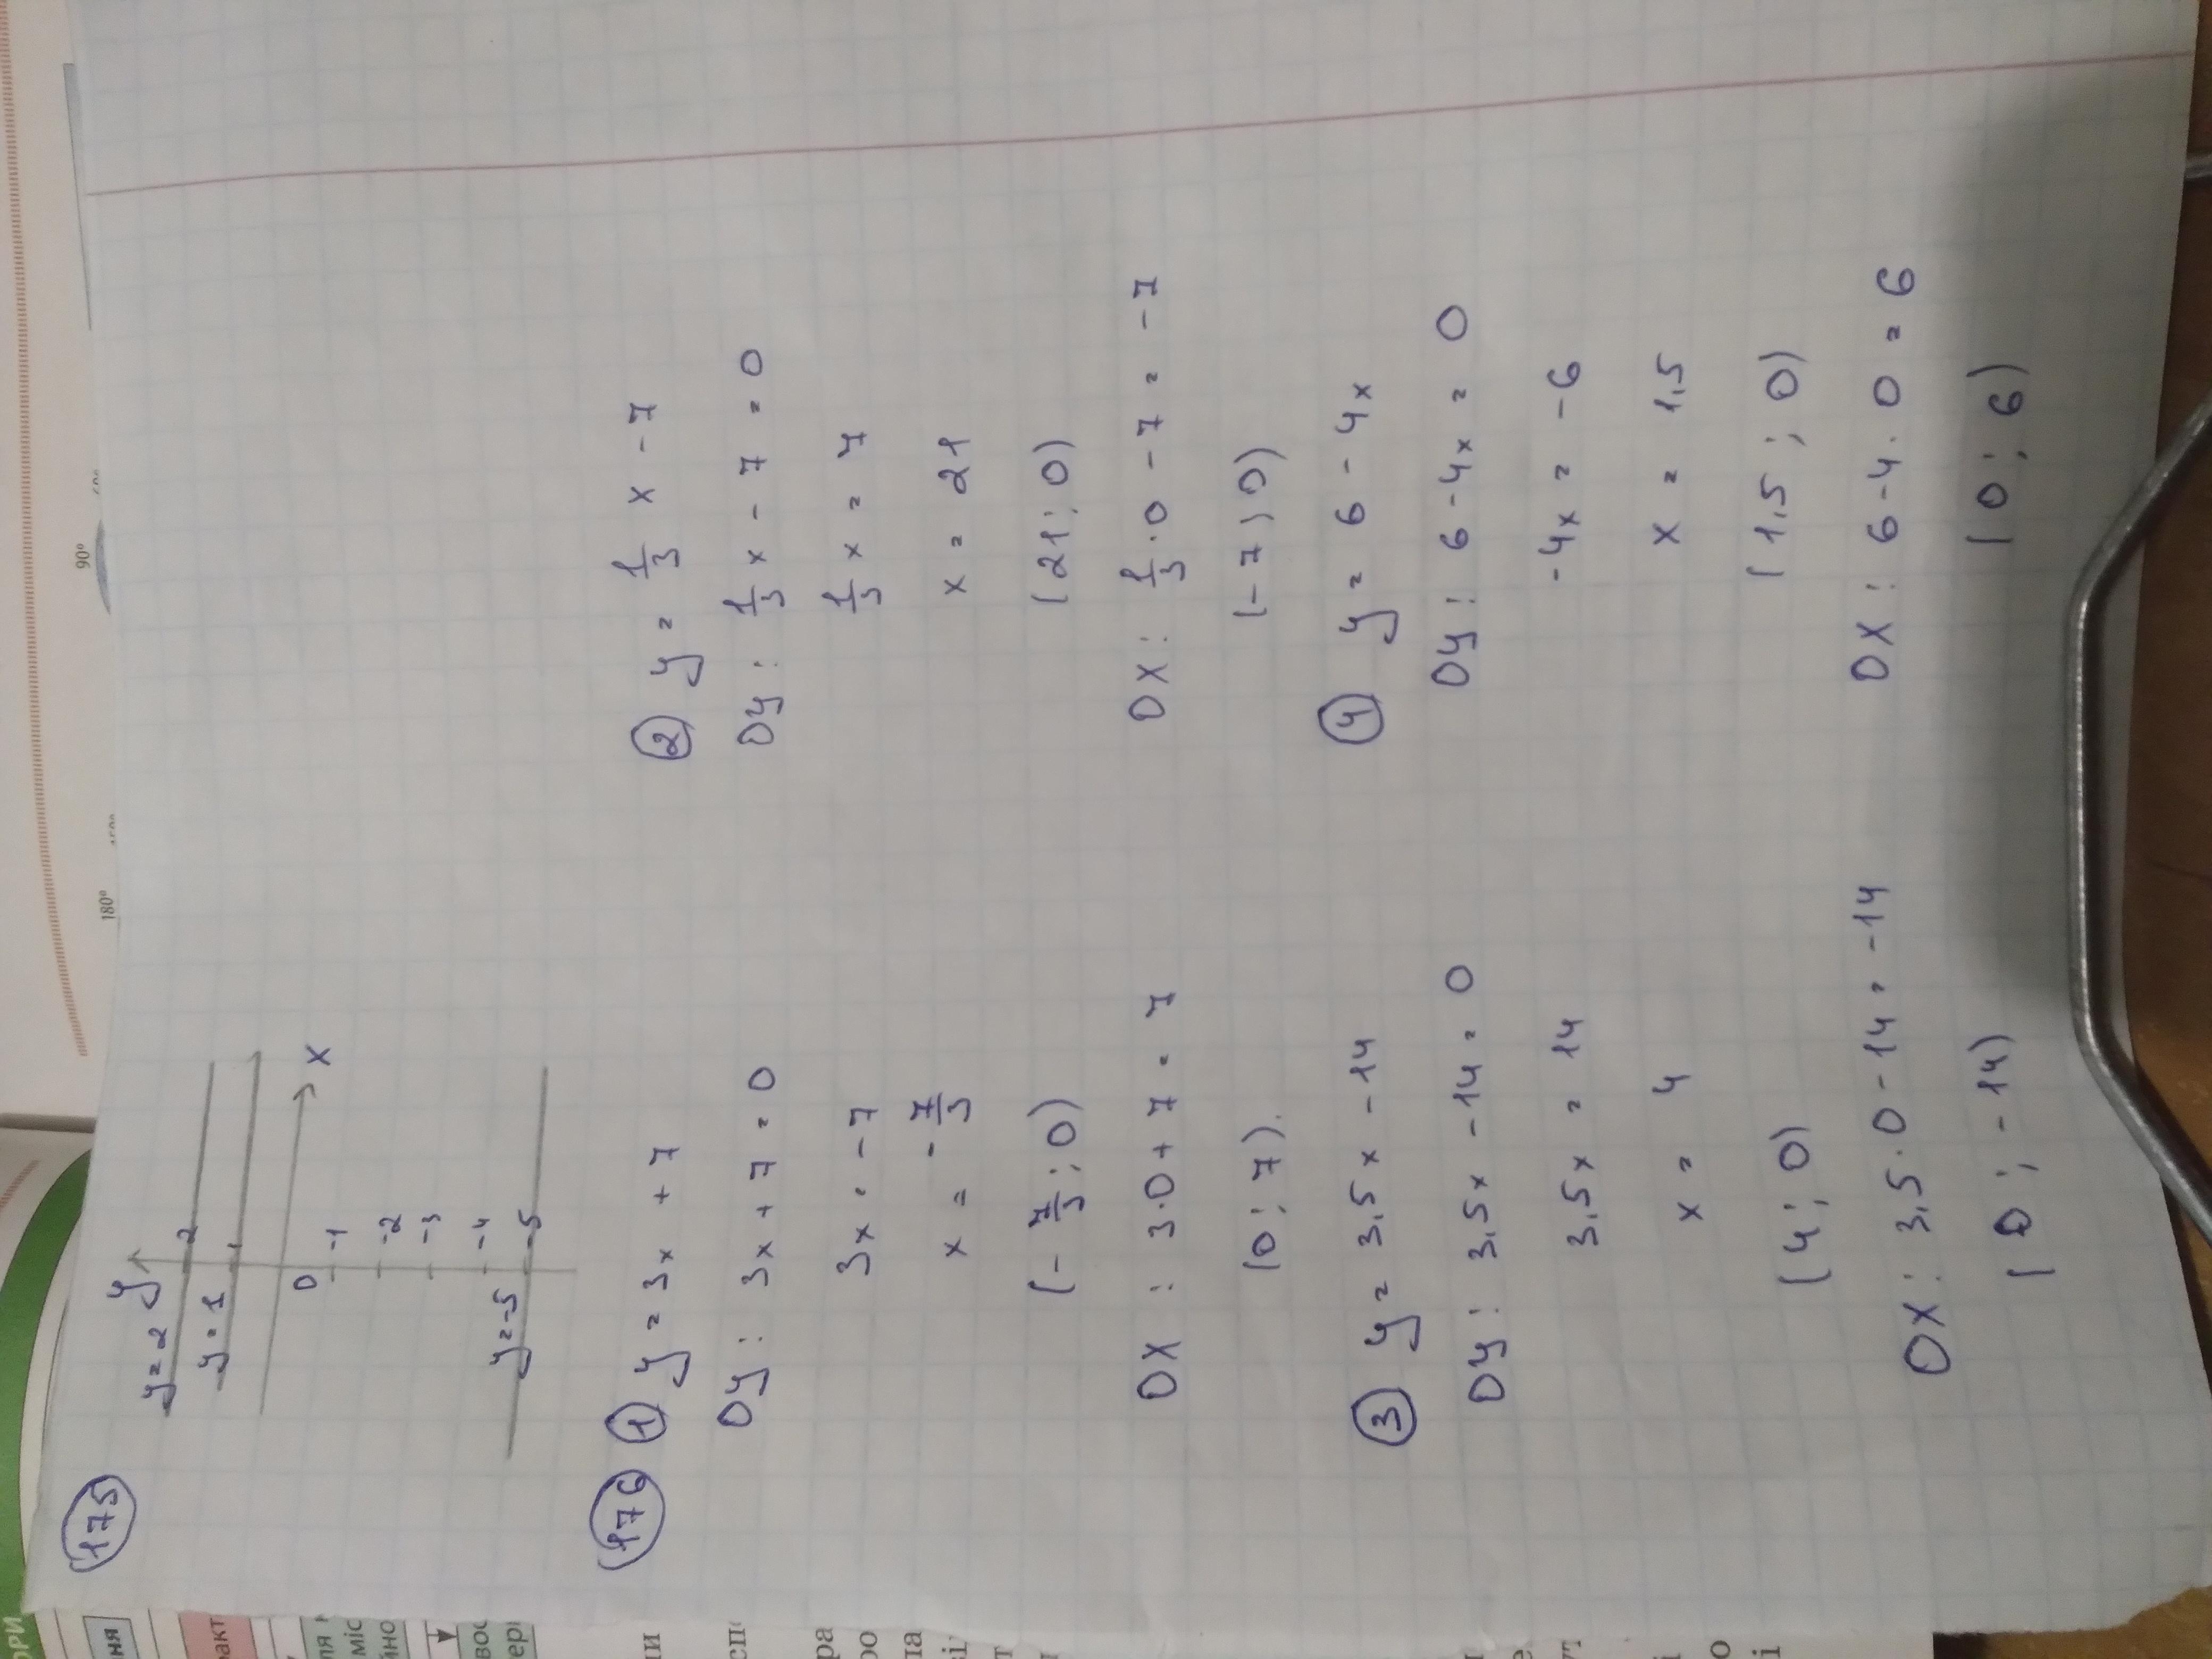 175
y
y=2 2
y=1 1
0 x
-1
-2
-3
-4
y=-5 -5
176 1 y = 3x + 7
Oy : 3x + 7 = 0
3x = -7
x = -7/3
(-7/3; 0)
OX : 3·0 + 7 = 7
(0; 7).
2 y = 1/3 x - 7
Oy : 1/3 x - 7 = 0
1/3 x = 7
x = 21
(21; 0)
OX : 1/3 · 0 - 7 = -7
(-7; 0)
3 y = 3,5x - 14
Oy : 3,5x - 14 = 0
3,5x = 14
x = 4
(4; 0)
OX : 3,5·0 - 14 = -14
(0; -14)
4 y = 6 - 4x
Oy : 6 - 4x = 0
-4x = -6
x = 1,5
(1,5; 0)
OX : 6 - 4·0 = 6
(0; 6)
180°
90°